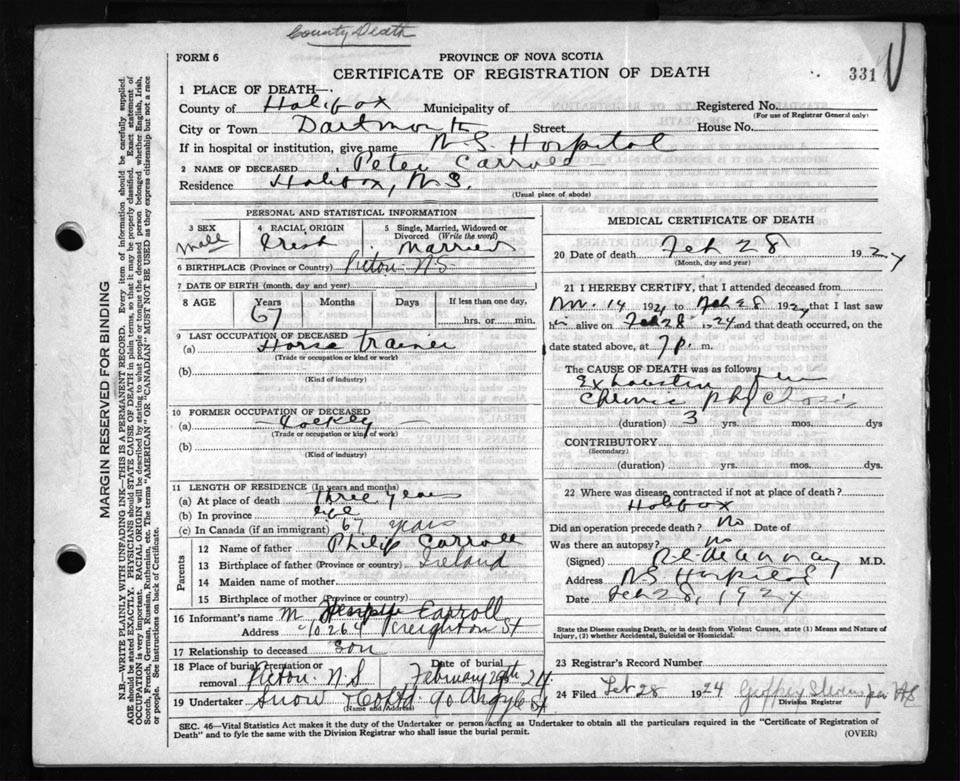 County Death
FORM 6
PROVINCE OF NOVA SCOTIA
CERTIFICATE OF REGISTRATION OF DEATH
331
1 PLACE OF DEATH—
County of Halifax Municipality of
Registered No.
(For use of Registrar General only)
City or Town Dartmouth Street House No.
If in hospital or institution, give name N.S. Hospital
2 NAME OF DECEASED Peter Carroll
Residence Halifax, N.S.
(Usual place of abode)
PERSONAL AND STATISTICAL INFORMATION
3 SEX
Male
4 RACIAL ORIGIN
Irish
5 Single, Married, Widowed or
Divorced (Write the word)
Married
6 BIRTHPLACE (Province or Country) Pictou N.S
7 DATE OF BIRTH (month, day and year)
8 AGE Years Months Days If less than one day,
67
hrs. or min.
9 LAST OCCUPATION OF DECEASED
(a) Horse trainer
(Trade or occupation or kind or work)
(b)
(Kind of industry)
10 FORMER OCCUPATION OF DECEASED
(a) Jockey
(Trade or occupation or kind of work)
(b)
(Kind of industry)
11 LENGTH OF RESIDENCE (In years and months)
(a) At place of death three years
(b) In province life
(c) In Canada (if an immigrant) 67 years
Parents
12 Name of father Philip Carroll
13 Birthplace of father (Province or country) Ireland
14 Maiden name of mother
15 Birthplace of mother (Province or country)
16 Informant's name M Joseph Carroll
Address 264 Creighton St
17 Relationship to deceased son
18 Place of burial, cremation or
removal Pictou N.S
Date of burial
February 29th 24
19 Undertaker Snow & Co Ltd 90 Argyle St
(Name) (Address)
MEDICAL CERTIFICATE OF DEATH
20 Date of death Feb 28 1924
(Month, day and year)
21 I HEREBY CERTIFY, that I attended deceased from
Nov. 14 1921 to Feb 28 1924 that I last saw
him alive on Feb 28 1924 and that death occurred, on the
date stated above, at 7 p. m.
The CAUSE OF DEATH was as follows:
Exhaustion from
Chronic Phthisis
(duration) 3 yrs. mos. dys
CONTRIBUTORY
(Secondary)
(duration) yrs. mos. dys.
22 Where was disease contracted if not at place of death?
Halifax
Did an operation precede death? No Date of
Was there an autopsy? no
(Signed) M.D.
Address N.S Hospital
Date Feb 28, 1924
State the Disease causing Death, or in death from Violent Causes, state (1) Means and Nature of
Injury, (2) whether Accidental, Suicidal or Homicidal.
23 Registrar's Record Number
24 Filed Feb 28 1924
Division Registrar
SEC. 46—Vital Statistics Act makes it the duty of the Undertaker or person acting as Undertaker to obtain all the particulars required in the "Certificate of Registration of
Death" and to fyle the same with the Division Registrar who shall issue the burial permit.
(OVER)
MARGIN RESERVED FOR BINDING
N.B.—WRITE PLAINLY WITH UNFADING INK—THIS IS A PERMANENT RECORD. Every item of information should be carefully supplied.
AGE should be stated EXACTLY. PHYSICIANS should STATE CAUSE OF DEATH in plain terms, so that it may be properly classified. Exact statement of
OCCUPATION is very important. RACIAL ORIGIN will be described by stating to what people or tongue the deceased person belonged whether English, Irish,
Scotch, French, German, Russian, Ruthenian, etc. The terms "AMERICAN" OR "CANADIAN" MUST NOT BE USED as they express citizenship but not a race
or people. See instructions on back of Certificate.